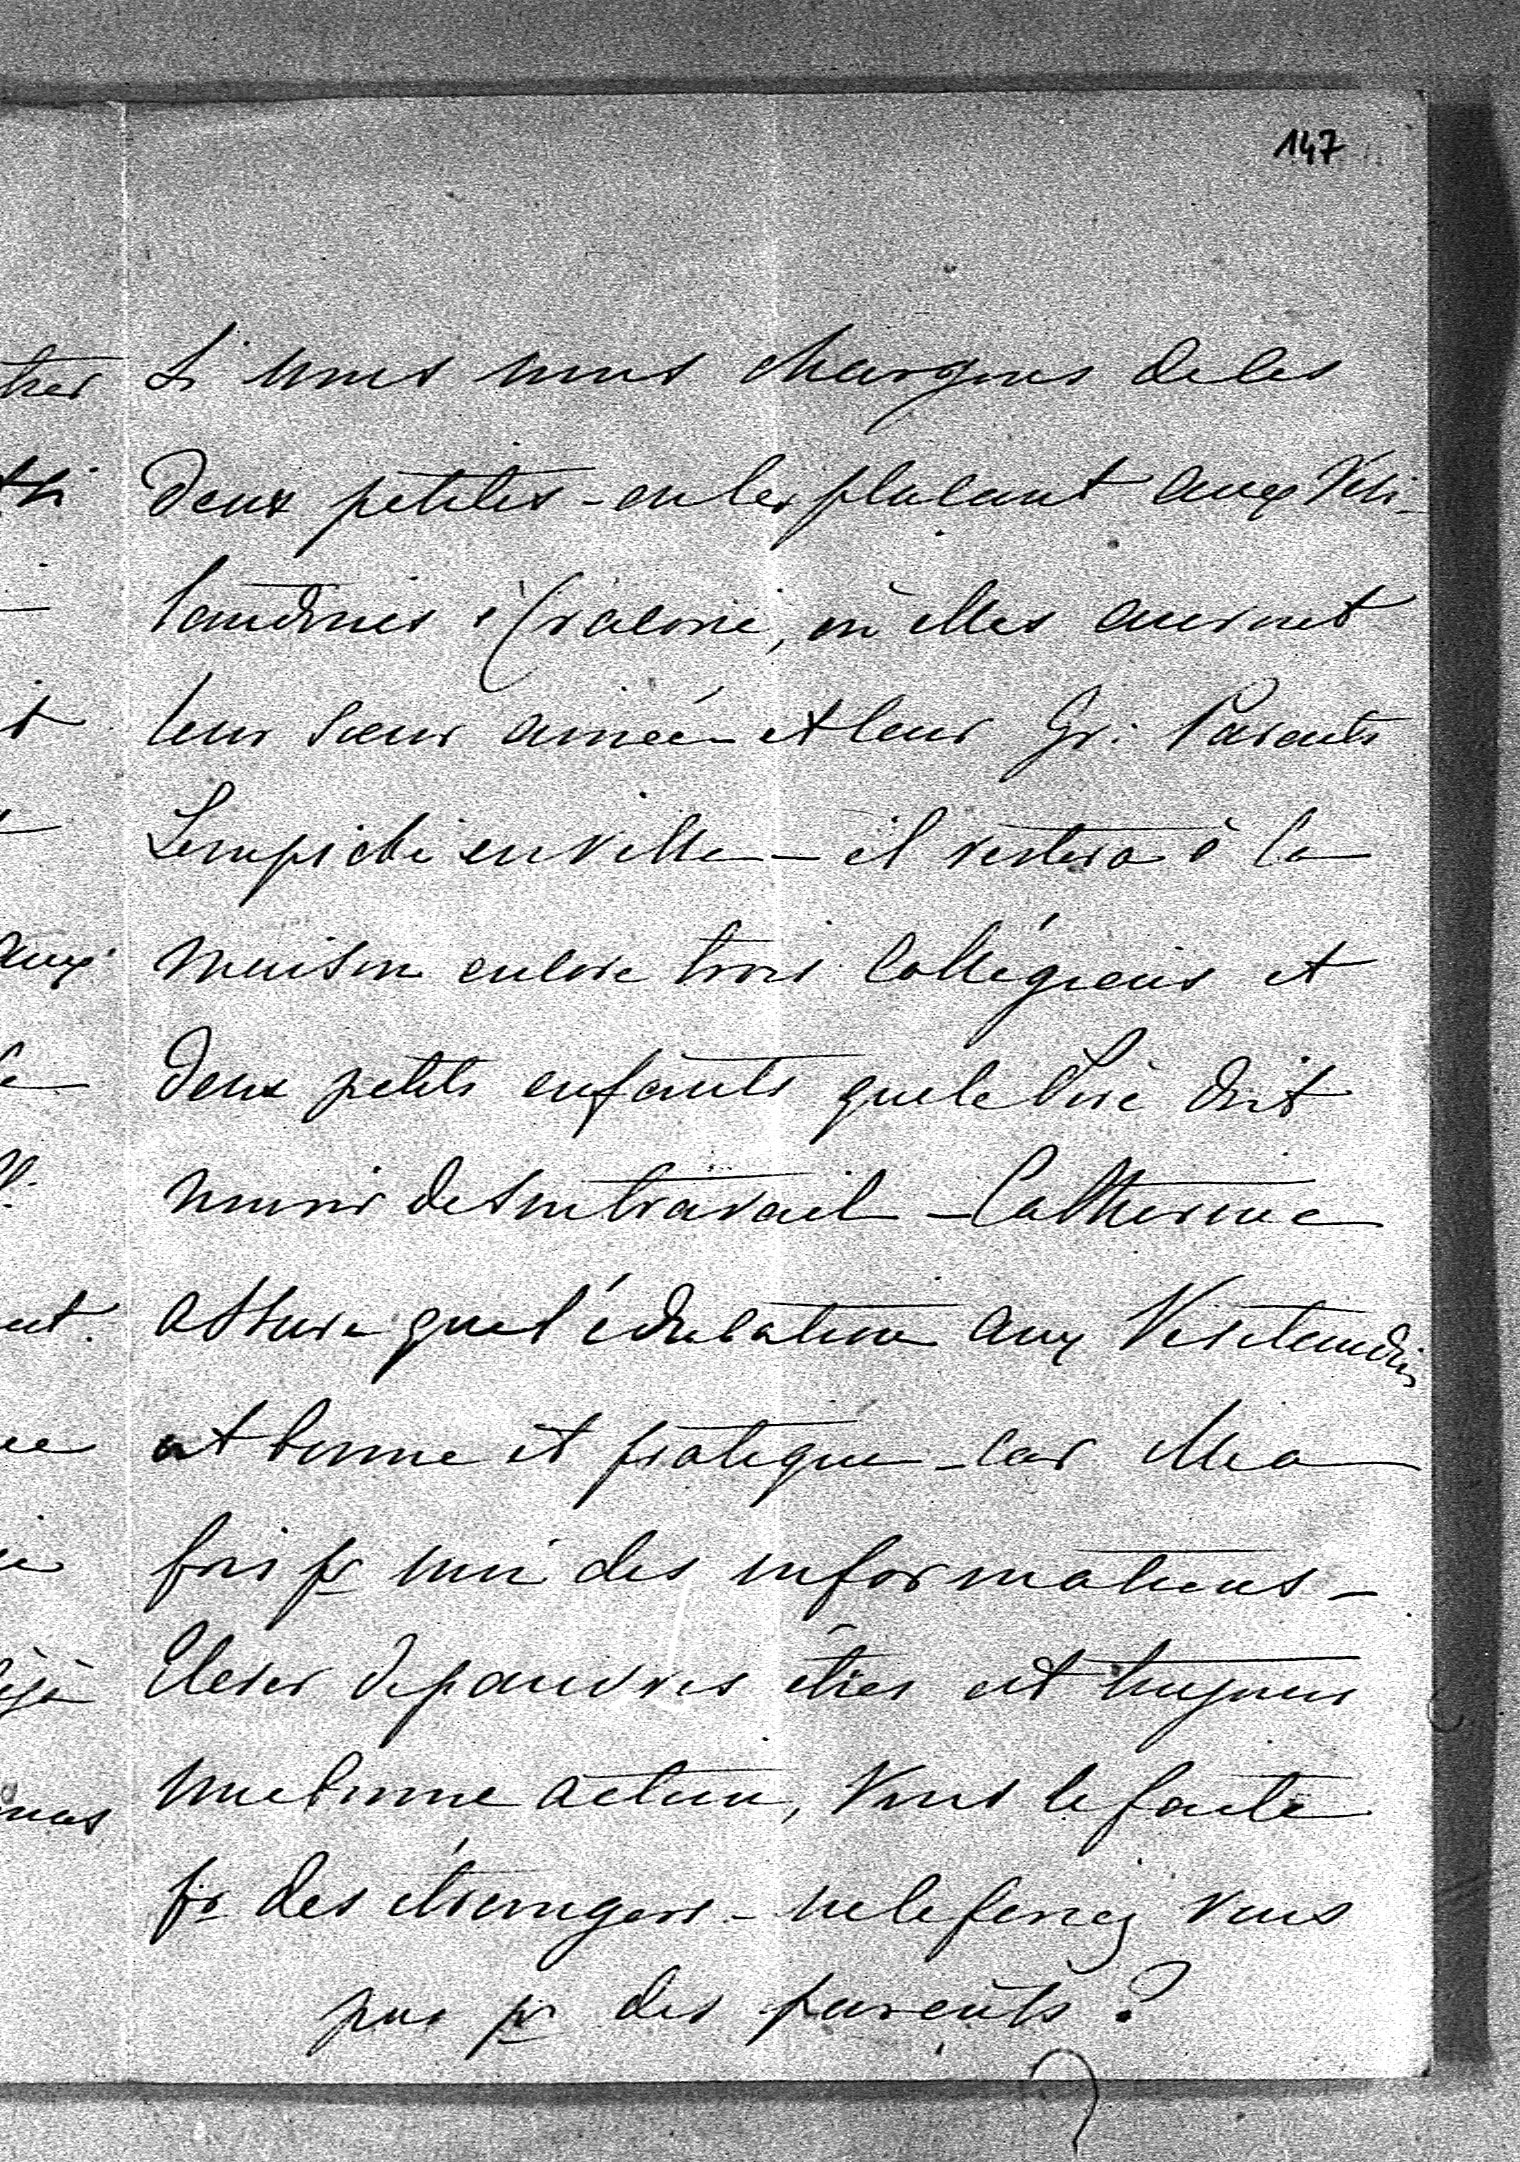 147
Si nous nous chargons de les
deux petites - en les placant aux Visi-
tandines à Cracovie, où elles auront
leur sœur ainée - et leur Gr: Parents
Lempicki en ville - il restera à la
maison encore trois collégiens et
deux petits enfants que le Père doit
nourir de son travail - Catherine
assure que l'éducation aux Visitandin
est bonne et pratique - car elle a
pris pr moi des informations -
Elever de pauvres êtres est toujours
une bonne action, Vous le faite
pr des étrangers - ne le feriez Vous
pas pr des parents?